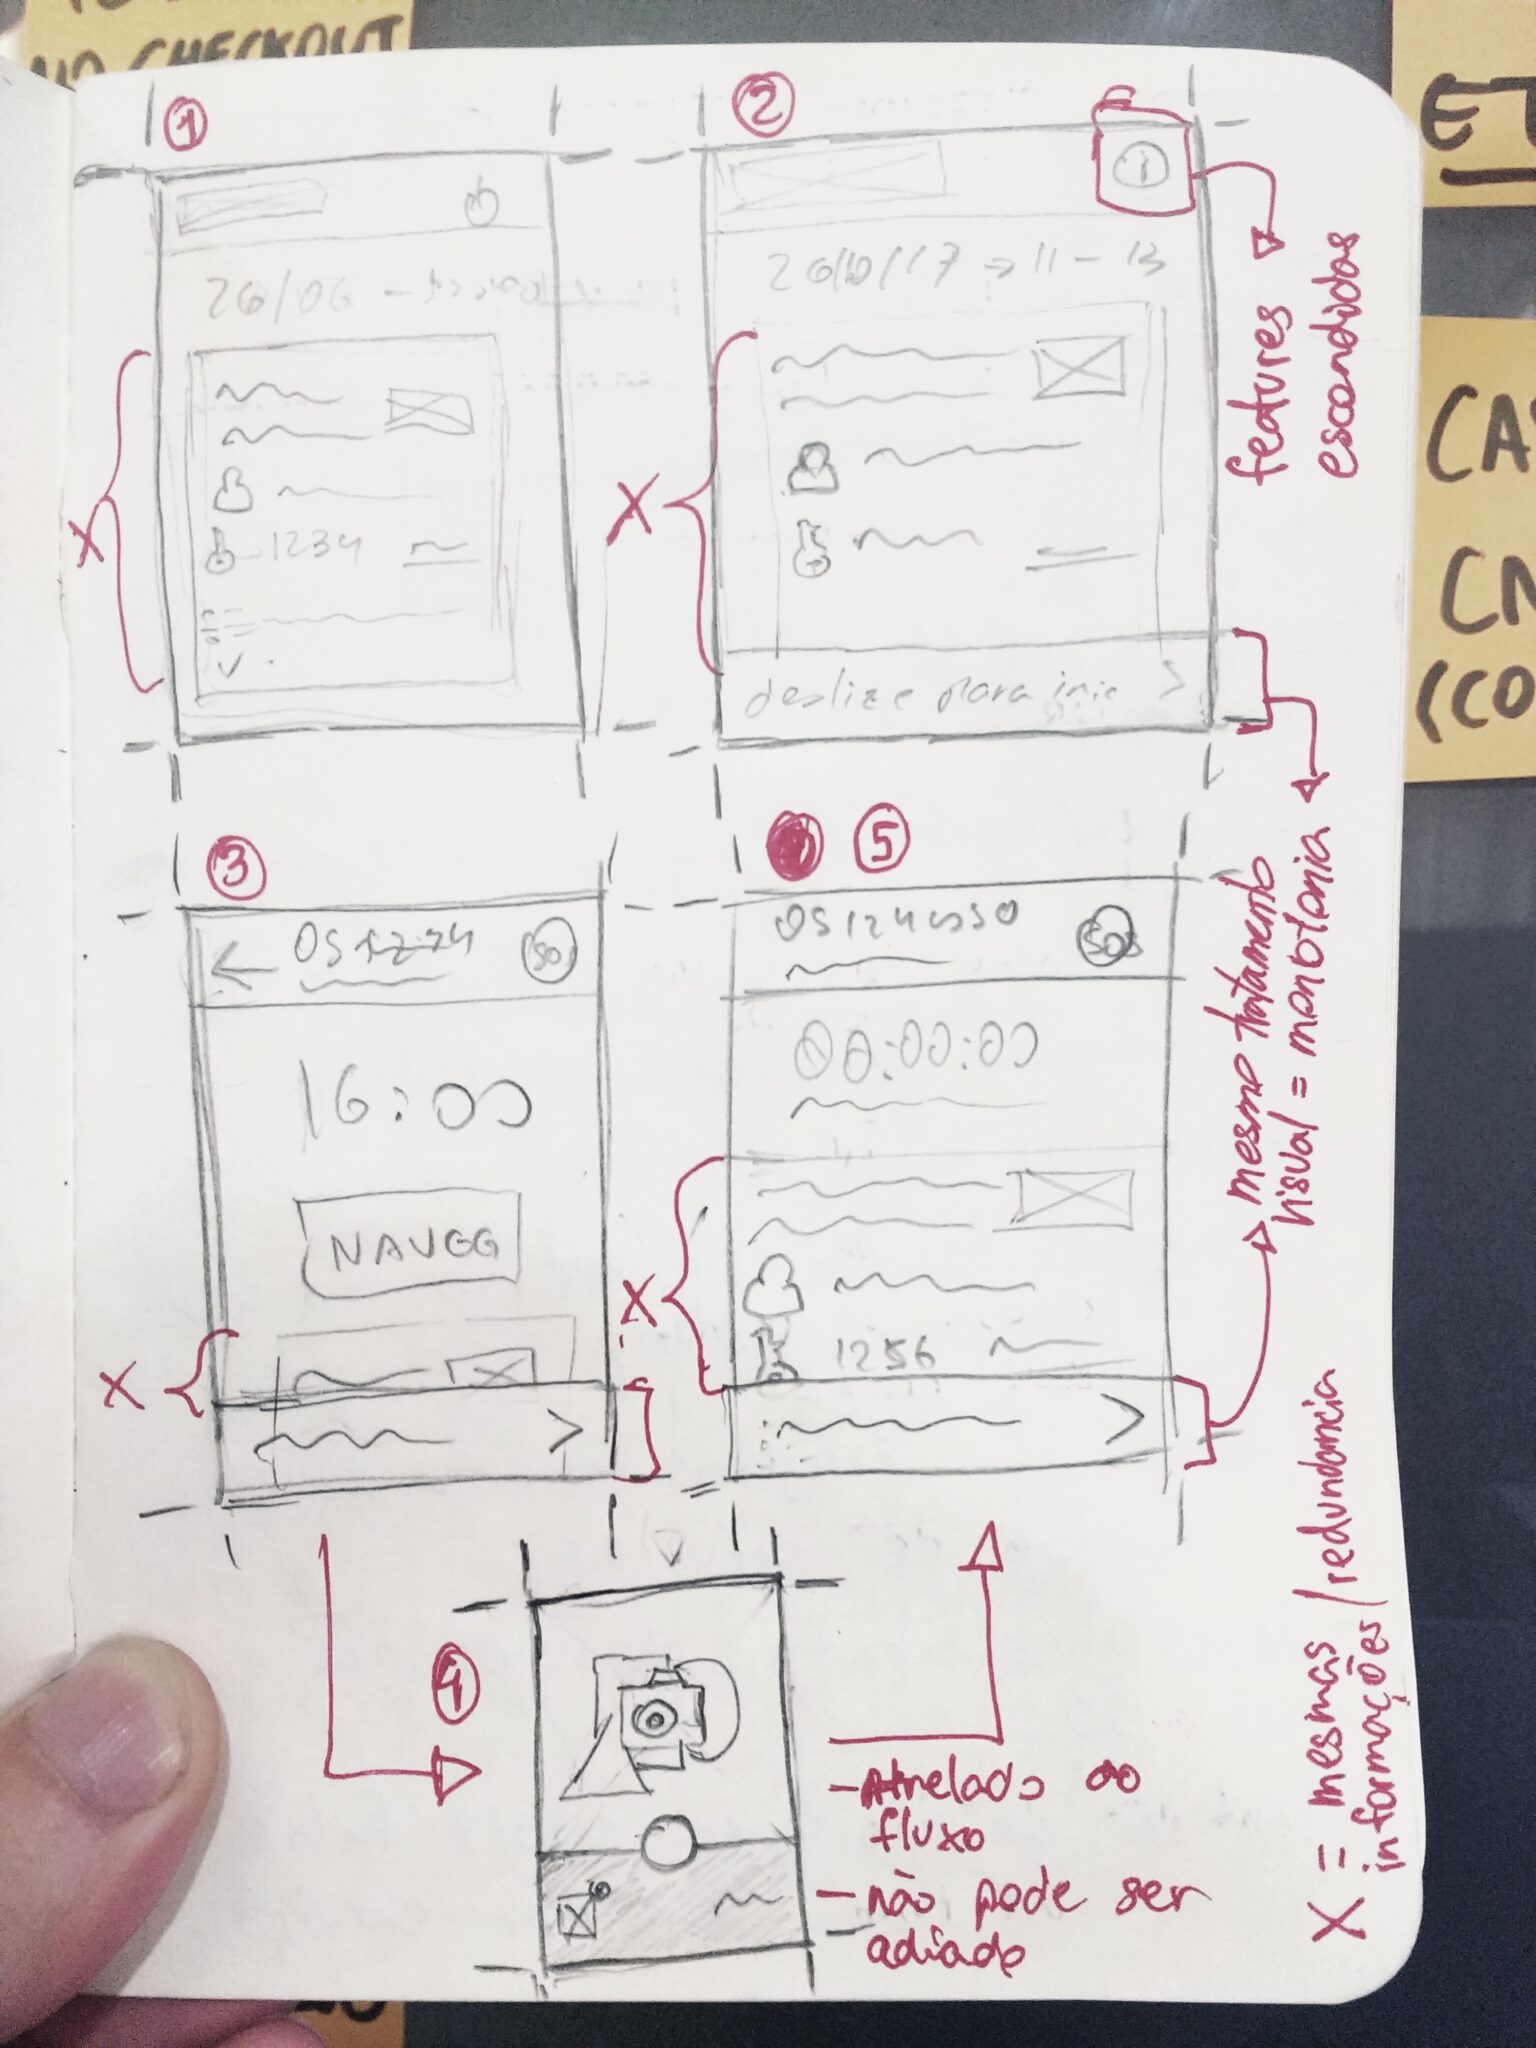 NO CHECKOUT
1
2
26/06 -
i
26/10/17 → 11 - 13
features
escondidas
X
1234
X
deslize para inic >
ET
CA
CN
(CO
3
5
OS
SOS
16:00
NAVEG
X
>
OS
SOS
00:00:00
X
1256
>
mesmo tratamento
visual = monotonia
4
- Atrelado ao
fluxo
- não pode ser
adiado
X = mesmas /redundancia
informações